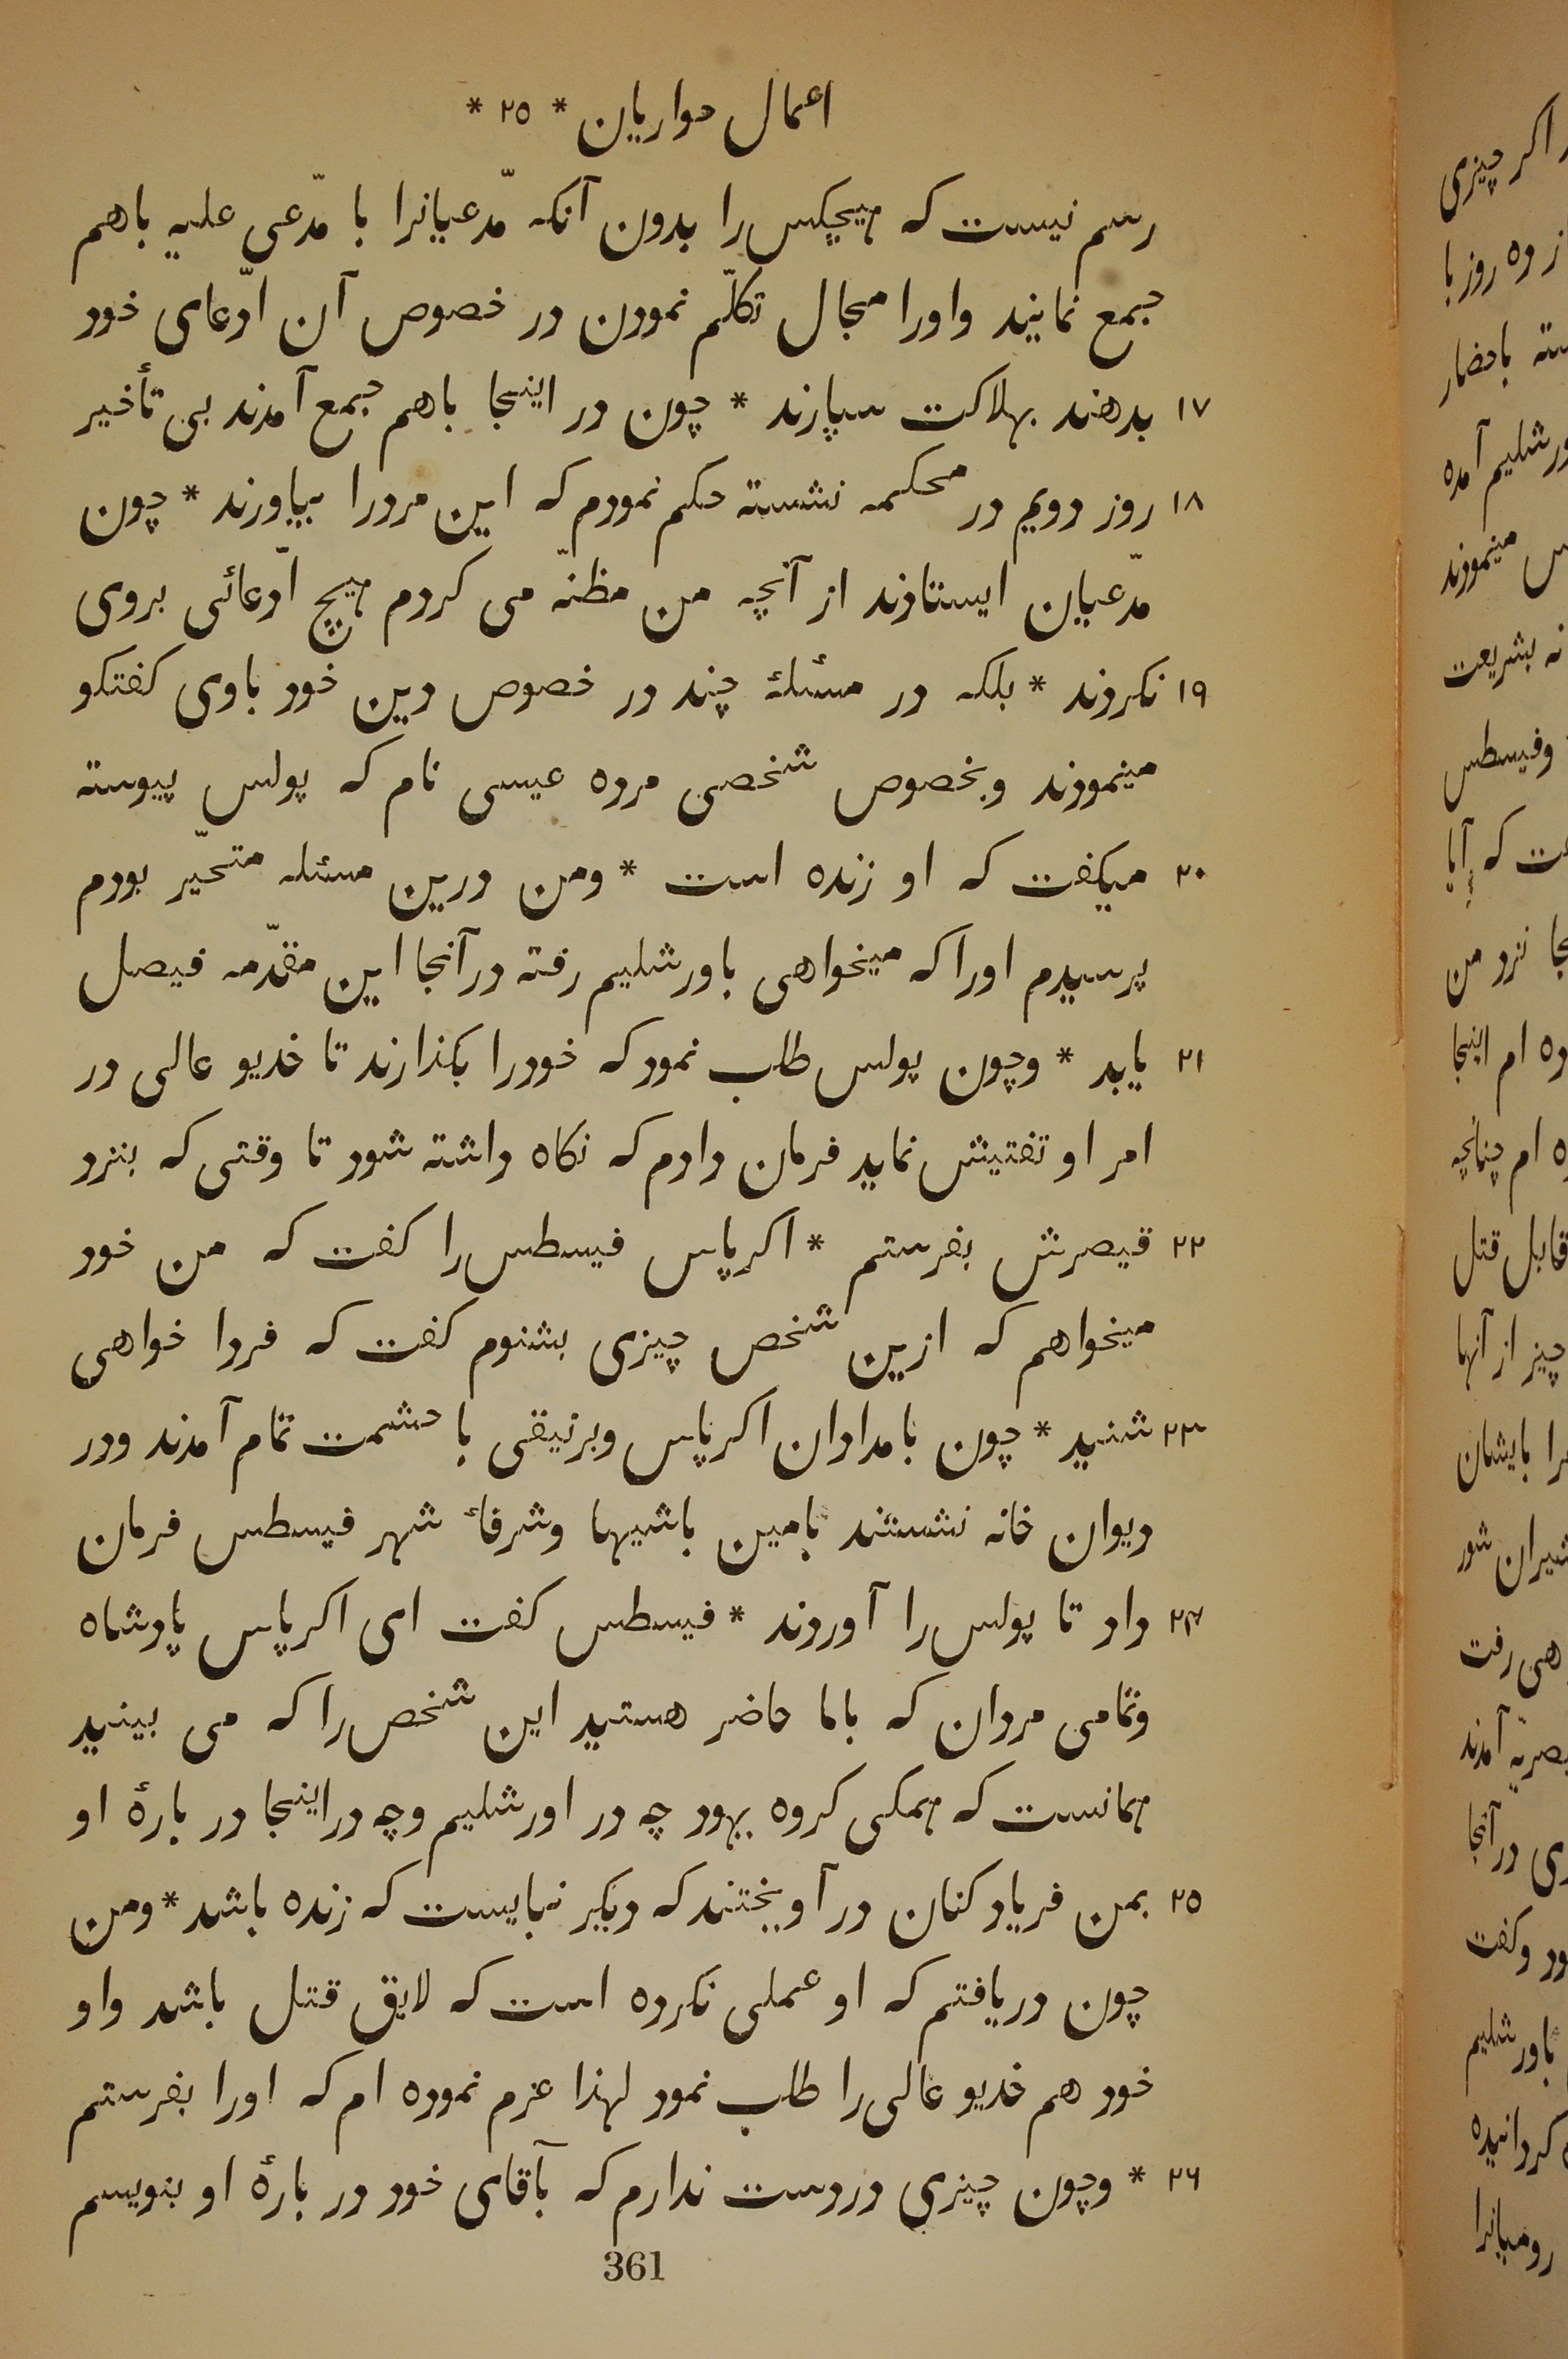 اعمال حواریان * ۲۵ *
رسم نیست که هیچکس را بدون آنکه مدّعیانرا با مدّعی علیه باهم
جمع نمایند واورا مجال تکلّم نمودن در خصوص آن ادّعای خود
۱۷ بدهند بهلاکت سپارند * چون در اینجا باهم جمع آمدند بی تأخیر
۱۸ روز دویم در محکمه نشسته حکم نمودم که این مردرا بیاورند * چون
مدّعیان ایستادند از آنچه من مظنّه می کردم هیچ ادّعائی بروی
۱۹ نکردند * بلکه در مسئلهٔ چند در خصوص دین خود باوی کفتکو
مینمودند وبخصوص شخصی مرده عیسی نام که پولس پیوسته
۲۰ میکفت که او زنده است * ومن درین مسئله متحیّر بودم
پرسیدم اورا که میخواهی باورشلیم رفته درآنجا این مقدّمه فیصل
۲۱ یابد * وچون پولس طلب نمود که خودرا بکذارند تا خدیو عالی در
امر او تفتیش نماید فرمان دادم که نکاه داشته شود تا وقتی که بنزد
۲۲ قیصرش بفرستم * اکرپاس فیسطس را کفت که من خود
میخواهم که ازین شخص چیزی بشنوم کفت که فردا خواهی
۲۳ شنید * چون بامدادان اکرپاس وبرنیقی با حشمت تمام آمدند ودر
دیوان خانه نشستند بامین باشیها وشرفاءٔ شهر فیسطس فرمان
۲۴ داد تا پولس را آوردند * فیسطس کفت ای اکرپاس پادشاه
وتمامی مردان که باما حاضر هستید این شخص را که می بینید
همانست که همکی کروه یهود چه در اورشلیم وچه دراینجا در بارهٔ او
۲۵ بمن فریاد کنان در آویختند که دیکر نبایست که زنده باشد * ومن
چون دریافتم که او عملی نکرده است که لایق قتل باشد واو
خود هم خدیو عالی را طلب نمود لهذا عزم نموده ام که اورا بفرستم
۲۶ * وچون چیزی دردست ندارم که بآقای خود در بارهٔ او بنویسم
361
اکر چیزی
ده روز با
باحضار
آمده
مینمودند
بشریعت
وفیسطس
که آیا
نزد من
ام اینجا
ام چنانچه
قابل قتل
چیز از آنها
بایشان
شود
رفت
آمدند
درآنجا
وکفت
باورشلیم
کردانیده
رومیانرا